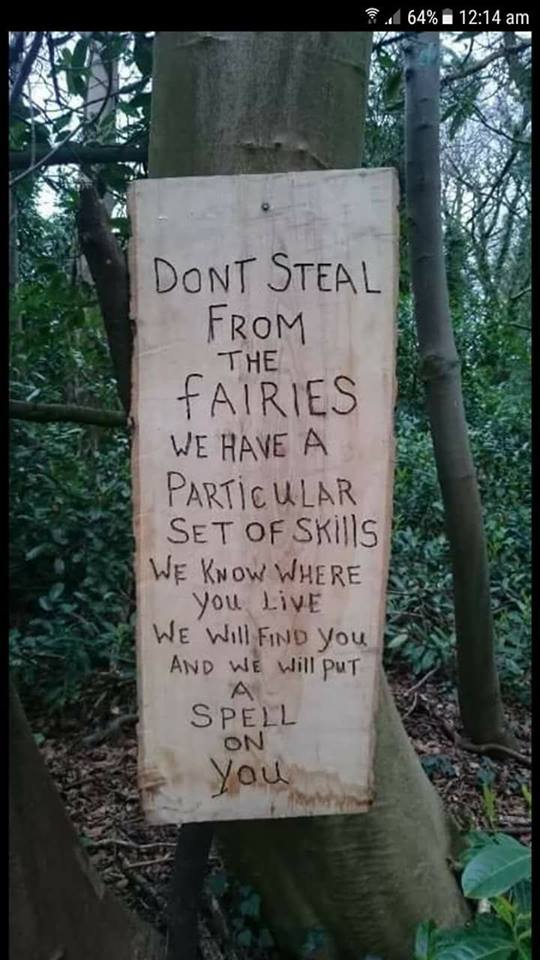 64% 12:14 am
DONT STEAL
FROM
THE
fAIRIES
WE HAVE A
PARTiCULAR
SET OF SKIllS
WE KNOW WHERE
you LiVE
WE Will FiND you
AND WE will PUT
A
SPELL
ON
you